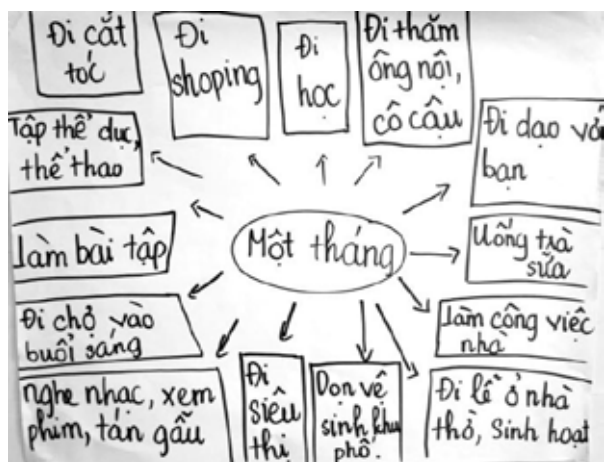 Đi cắt
tóc
Đi
shoping
Đi
học
Đi thăm
ông nội,
cô cậu
Tập thể dục,
thể thao
Đi dạo với
bạn
Làm bài tập
Một tháng
Uống trà
sữa
Đi chợ vào
buổi sáng
Làm công việc
nhà
nghe nhạc, xem
phim, tán gẫu
Đi
siêu
thị
Dọn vệ
sinh khu
phố.
Đi lễ ở nhà
thờ, Sinh hoạt